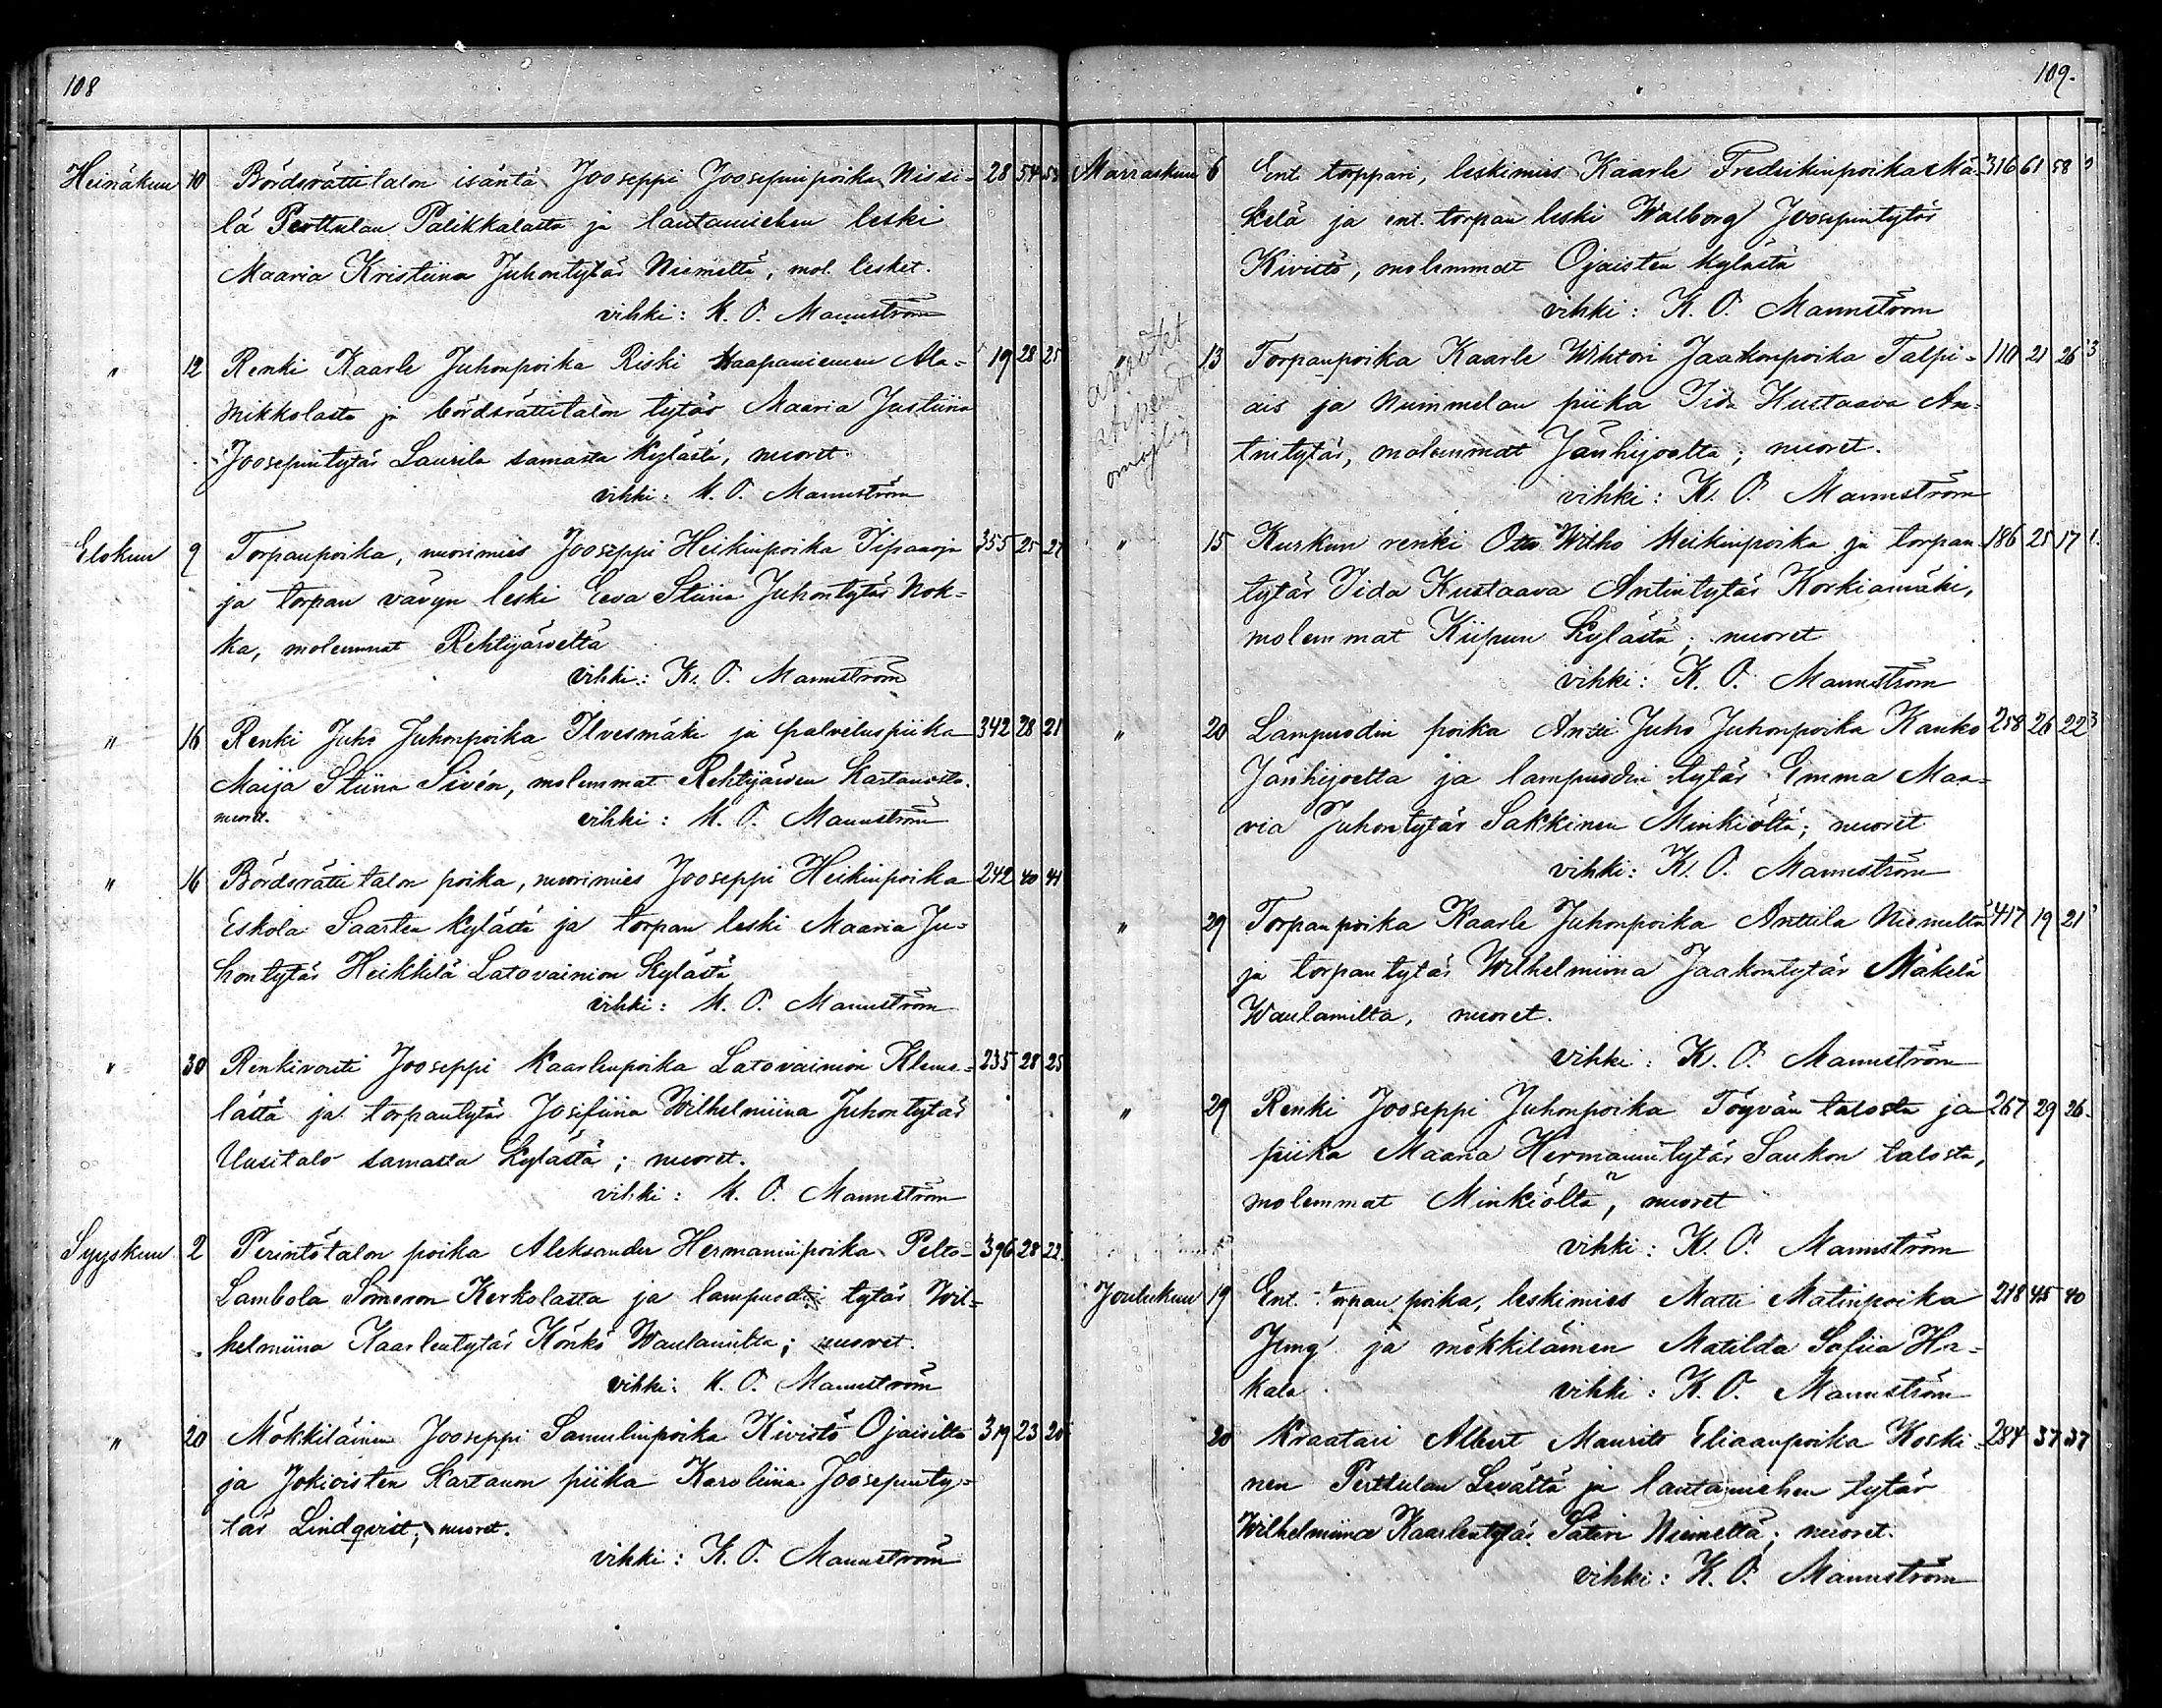 108
Heinäkuu 10 Bördsrättitalon isäntä Jooseppi Joosepinpoika Nissi- 28 54 53
lä Perttulan Palikkalasta ja lautamiehen leski
Maaria Kristiina Juhontytär Niemeltä, mol. lesket.
vihki: K. O. Mannström
" 12 Renki Kaarle Juhonpoika Riski Haapaniemen Ala- 19 28 25
Mikkolasta ja bördsrättitalon tytär Maaria Justiina
Joosepintytär Laurila samasta kylästä, nuoret.
vihki: K. O. Mannström
Elokuu 9 Torpanpoika, nuorimies Jooseppi Heikinpoika Tipanoja 355 25 27
ja torpan vävyn leski Eeva Stiina Juhontytär Nok-
ka, molemmat Rehtijärveltä
vihki: K. O. Mannström
" 16 Renki Juho Juhonpoika Ilvesmäki ja palveluspiika 342 28 21
Maija Stiina Sivén, molemmat Rehtijärven kartanosta.
nuoret. vihki: K. O. Mannström
" 16 Bördsrättitalon poika, nuorimies Jooseppi Heikinpoika 242 40 41
Eskola Saarten kylästä ja torpan leski Maaria Ju-
hontytär Heikkilä Latovainion kylästä
vihki: K. O. Mannström
" 30 Renkivouti Jooseppi Kaarlenpoika Latovainion Kleme- 235 28 25
lästä ja torpantytär Josefiina Wilhelmiina Juhontytär
Uusitalo samasta kylästä; nuoret.
vihki: K. O. Mannström
Syyskuu 2 Perintötalon poika Aleksander Hermanninpoika Pelto- 396 28 22
Lambola Someron Kerkolasta ja lampuodin tytär Wil-
helmiina Kaarlentytär Könkö Waulamilta; nuoret.
vihki: K. O. Mannström
" 20 Mökkiläinen Jooseppi Samulinpoika Kivistö Ojaisilta 319 23 20
ja Jokioisten kartanon piika Karoliina Joosepinty-
tär Lindqvist; nuoret.
vihki: K. O. Mannström
109.
Marraskuu 6 Ent. torppari, leskimies Kaarle Fredrikinpoika Mä- 316 61 58
kelä ja ent. torpan leski Walborg Joosepintytär
Kivistö, molemmat Ojaisten kylästä
vihki: K. O. Mannström
" 13 Torpanpoika Kaarle Wihtori Jaakonpoika Talpi- 110 21 26
ais ja Nummelan piika Iida Kustaava An-
tintytär, molemmat Jänhijoelta; nuoret.
vihki: K. O. Mannström
" 15 Kurkun renki Otto Wilho Heikinpoika ja torpan 186 25 17
tytär Iida Kustaava Antintytär Korkiamäki,
molemmat Kiipun kylästä; nuoret
vihki: K. O. Mannström
" 20 Lampuodin poika Antti Juho Juhonpoika Kauko 258 26 22
Jänhijoelta ja lampuodin tytär Emma Maa-
ria Juhontytär Sakkinen Minkiöltä; nuoret
vihki: K. O. Mannström
" 29 Torpanpoika Kaarle Juhonpoika Anttila Niemeltä 417 19 21
ja torpantytär Wilhelmiina Jaakontytär Mäkelä
Waulamilta, nuoret.
vihki: K. O. Mannström
" 29 Renki Jooseppi Juhonpoika Töyvän talosta ja 267 29 26
piika Maaria Hermannintytär Saukon talosta,
molemmat Minkiöltä, nuoret
vihki: K. O. Mannström
Joulukuu 19 Ent. torpan poika, leskimies Matti Matinpoika 218 45 40
Jung ja mökkiläinen Matilda Sofiia Ha-
kala vihki: K. O. Mannström
20 Kraatari Albert Maurits Eliaanpoika Koski- 284 37 37
nen Perttulan Levältä ja lautamiehen tytär
Wilhelmiina Kaarlentytär Säteri Niemeltä; nuoret.
vihki: K. O. Mannström